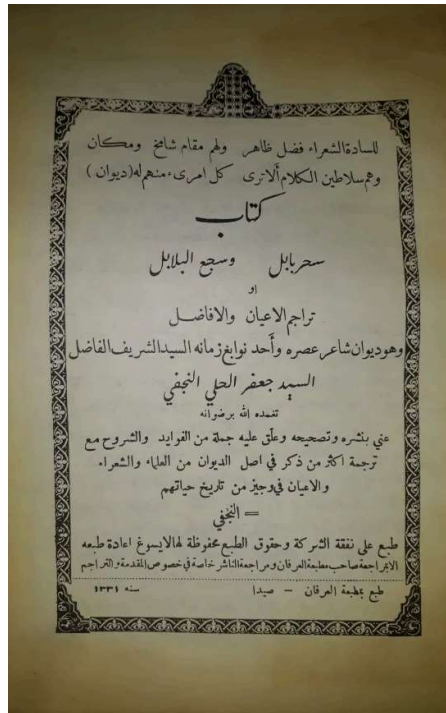 للسادة الشعراء فضل ظاهر ولهم مقام شامخ ومكان
وهم سلاطين الكلام ألا ترى كل امرىء منهم له (ديوان)
كتاب
سحر بابل وسجع البلابل
او
تراجم الاعيان والافاضل
وهو ديوان شاعر عصره وأحد نوابغ زمانه السيد الشريف الفاضل
السيد جعفر الحلي النجفي
تغمده الله برضوانه
عني بنشره وتصحيحه وعلق عليه جملة من الفوايد والشروح مع
ترجمة اكثر من ذكر في اصل الديوان من العلماء والشعراء
والاعيان في وجيز من تاريخ حياتهم
= النجفي
طبع على نفقة الشركة وحقوق الطبع محفوظة لها لا يسوغ اعادة طبعه
الا بمراجعة صاحب مطبعة العرفان ومراجعة الناشر خاصة في خصوص المقدمة والتراجم
طبع بمطبعة العرفان - صيدا سنه ١٣٣١